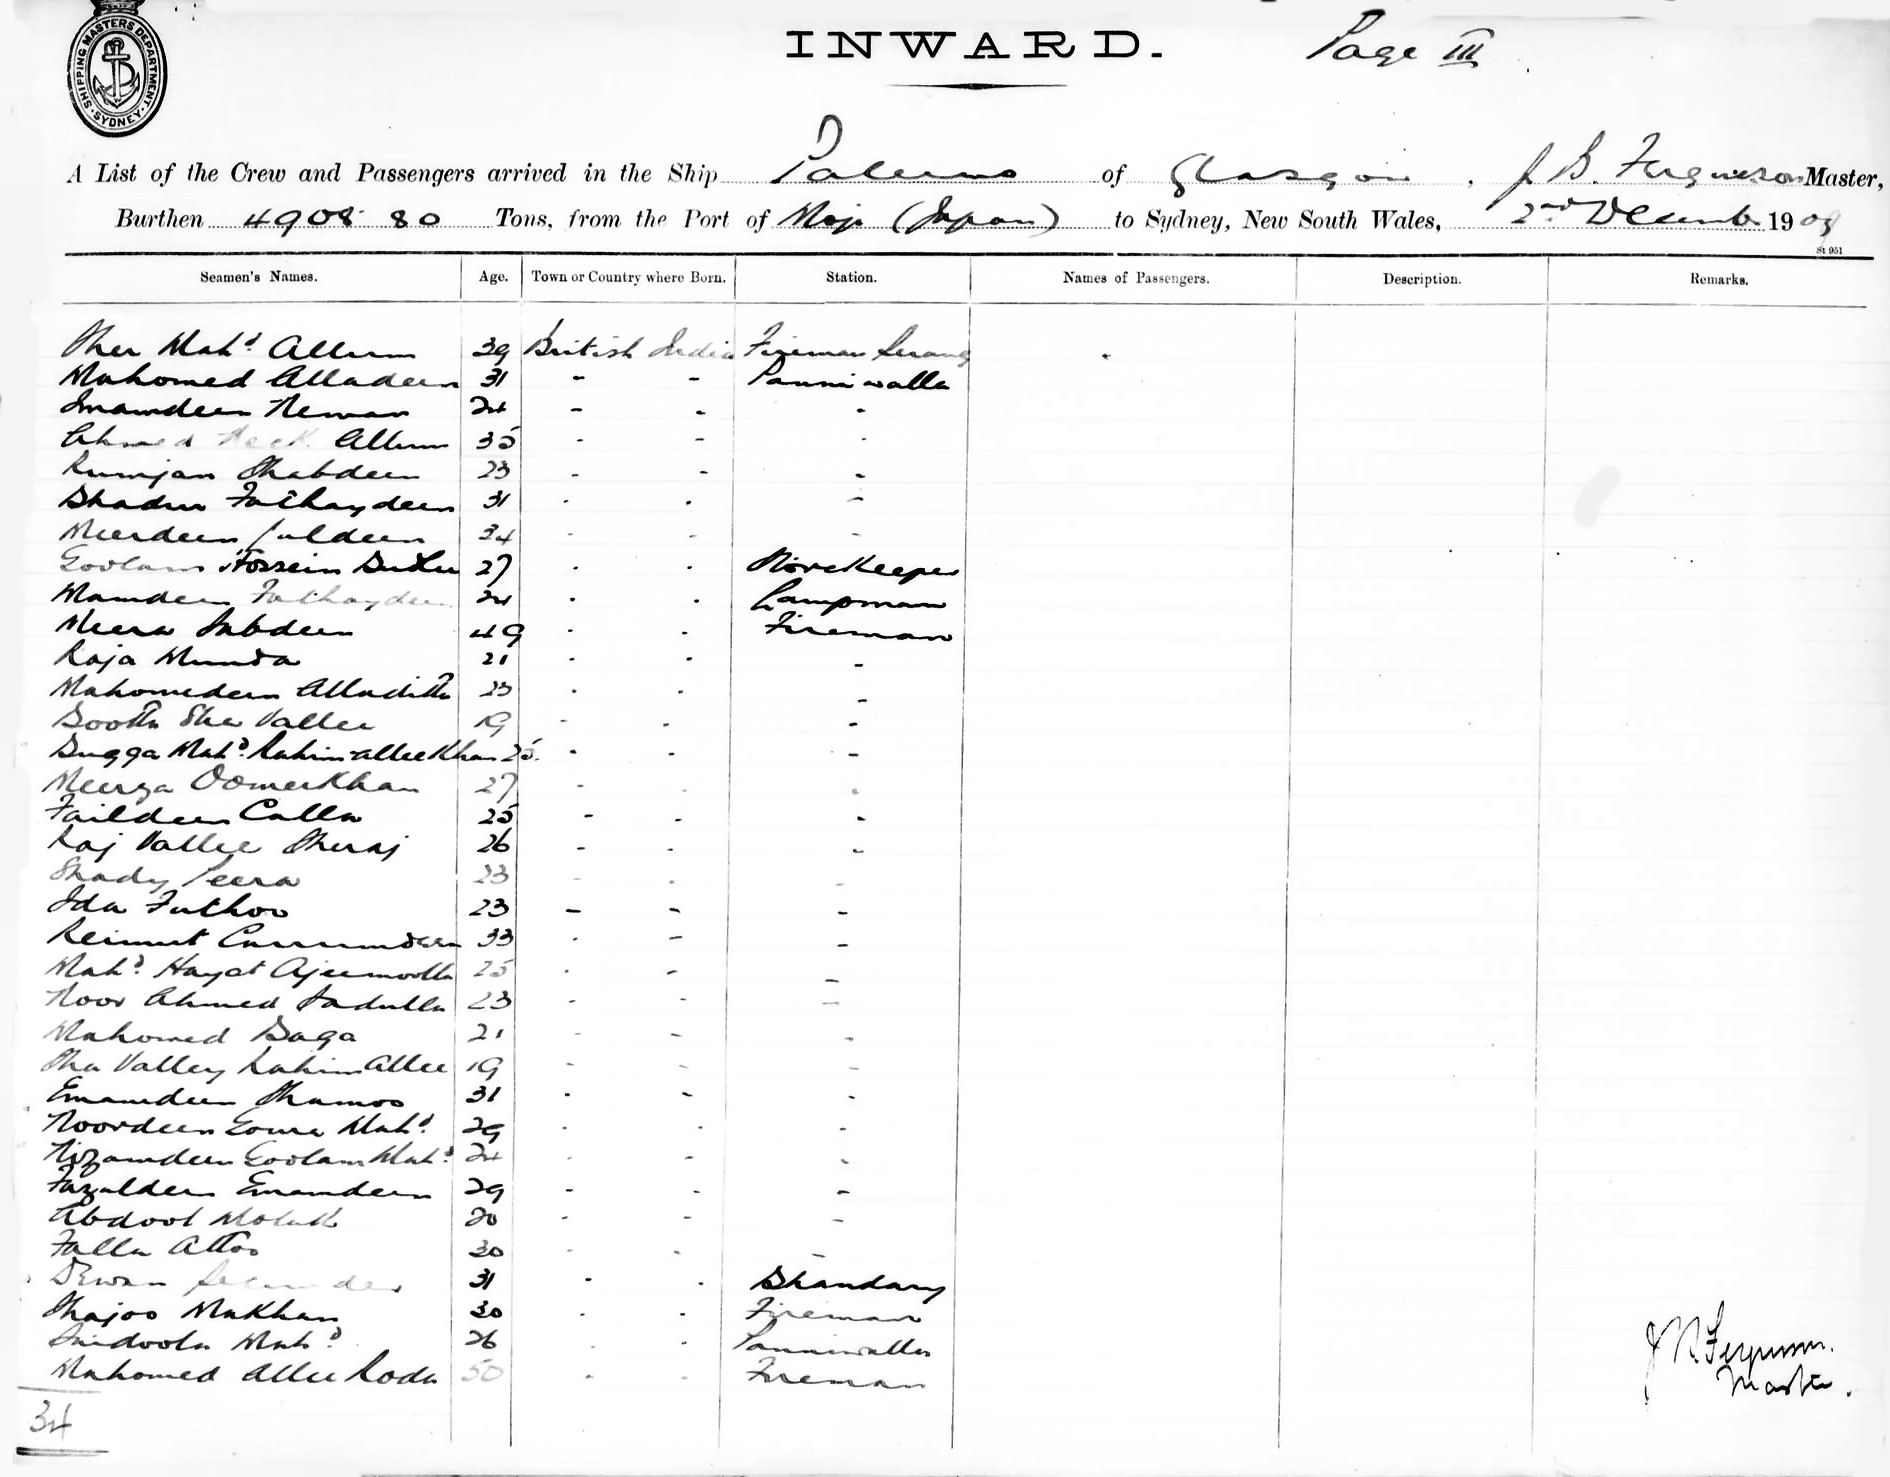 SHIPPING MASTERS DEPARTMENT · SYDNEY ·
INWARD. Page III
A List of the Crew and Passengers arrived in the Ship Palermo of Glasgow, J B. Ferguson Master,
Burthen 4908 80 Tons, from the Port of Moji (Japan) to Sydney, New South Wales, 2nd December 1908
St 951
Seamen's Names. Age. Town or Country where Born. Station. Names of Passengers. Description. Remarks.
Sher Mahd Allum 39 British India Fireman Serang
Mahomed Alladeen 31 - - Panniwalla
Imamdeen Newan 24 - - -
Ahmed Allum 35 - - -
Rumjan Shabdeen 23 - - -
Bhadur Fathaydeen 31 - - -
Meerdeen 34 - - -
Goolam Hossein Buxu 27 - - Storekeeper
Mamdeen Fathaydeen 24 - - Lampman
Meera Sabdeen 49 - - Fireman
Raja Munda 21 - - -
Mahomedeen Alladitta 23 - - -
Bootta Sher Vallee 19 - - -
Bugga Mahd Rahim allee Khan 25. - - -
Meerza Oomerkhan 27 - - -
Faildeen Calla 25 - - -
Raj Vallee Sheraj 26 - - -
Shady Peera 23 - - -
Ida Futhoo 23 - - -
Reimut Currumdeen 33 - - -
Mahd Hayat Ajeemoolla 25 - - -
Noor Ahmed Sadulla 23 - - -
Mahomed Baga 21 - - -
Sha Valley Rahim Allee 19 - - -
Emamdeen Shamoo 31 - - -
Noordeen Mahd 29 - - -
Nizamdeen Goolam Mahd 24 - - -
Fazuldeen Emamdeen 29 - - -
Abdool 20 - - -
Falla Attoo 30 - - -
Dewan Secunder 31 - - Bhandary
Shajoo Makhan 30 - - Fireman
Saidoola Mahd 26 - - Panniwalla
Mahomed Allee Roda 50 - - Fireman
34
J B. Ferguson.
Master.